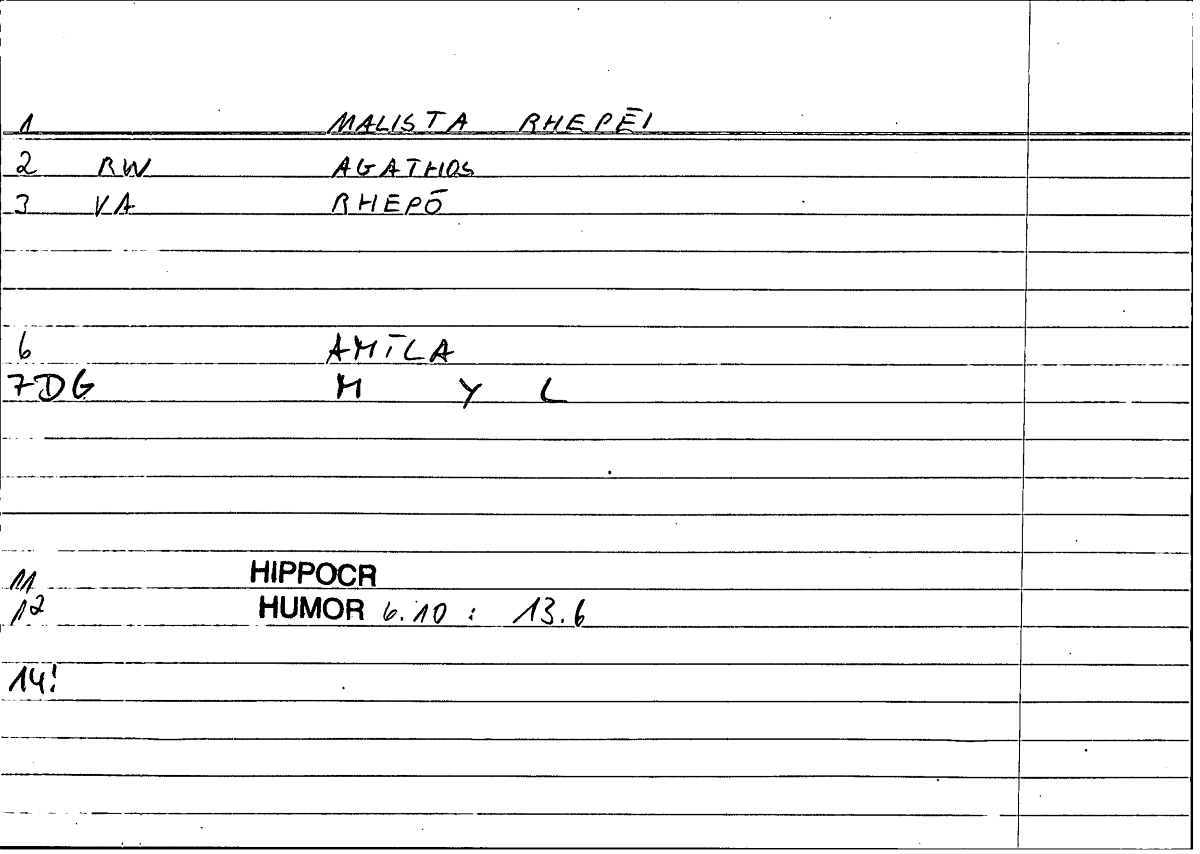 1 MALISTA RHEPĒI
2 RW AGATHOS
3 VA RHEPŌ
6 AMĪLA
7DG M Y L
11 HIPPOCR
12 HUMOR 6.10 : 13.6
14!